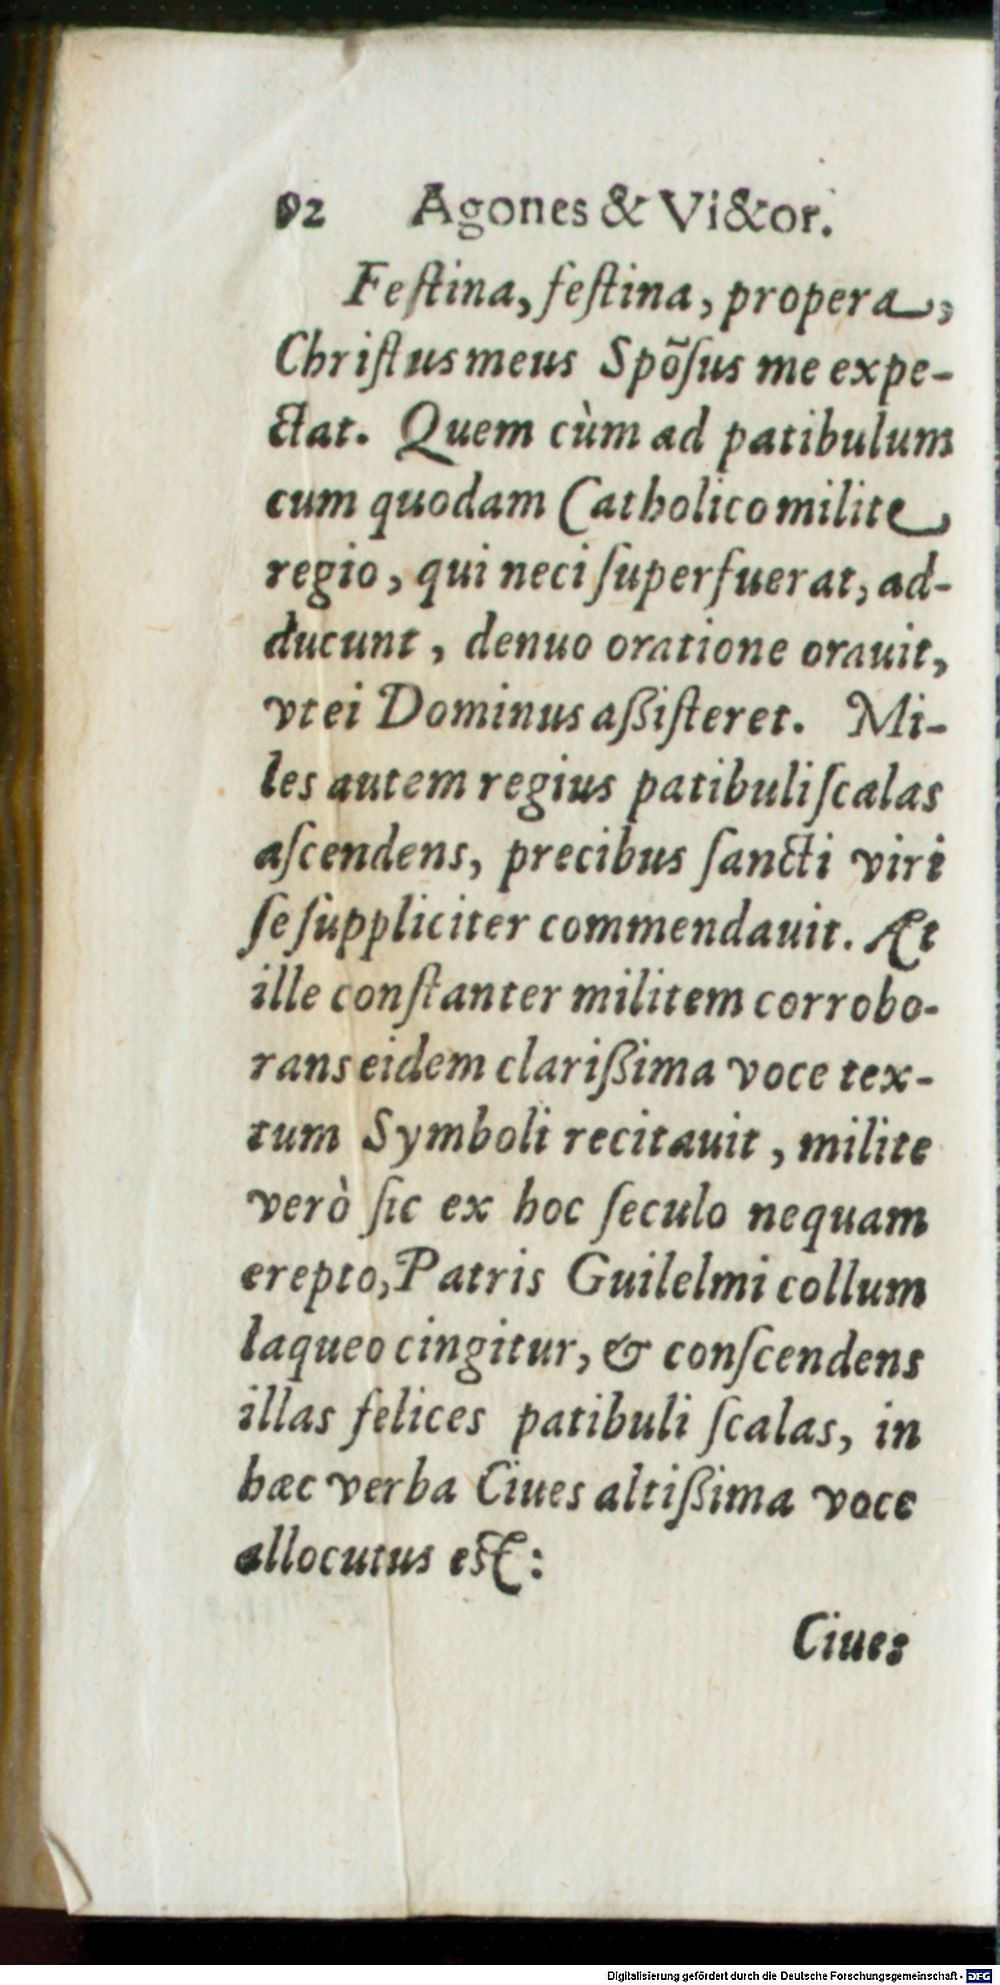 92 Agones & Vi&or.
Feſtina, feſtina, propera,
Chriſtus meus Spõſus me expe-
ctat. Quem cùm ad patibulum
cum quodam Catholico milite
regio, qui neci ſuperfuerat, ad-
ducunt, denuo oratione orauit,
vt ei Dominus aßiſteret. Mi-
les autem regius patibuli ſcalas
aſcendens, precibus ſancti viri
ſe ſuppliciter commendauit. Æt
ille conſtanter militem corrobo-
rans eidem clarißima voce tex-
tum Symboli recitauit, milite
verò ſic ex hoc ſeculo nequam
erepto, Patris Guilelmi collum
laqueo cingitur, & conſcendens
illas felices patibuli ſcalas, in
hæc verba Ciues altißima voce
allocutus eſt:
Ciues
Digitalisierung gefördert durch die Deutsche Forschungsgemeinschaft - DFG